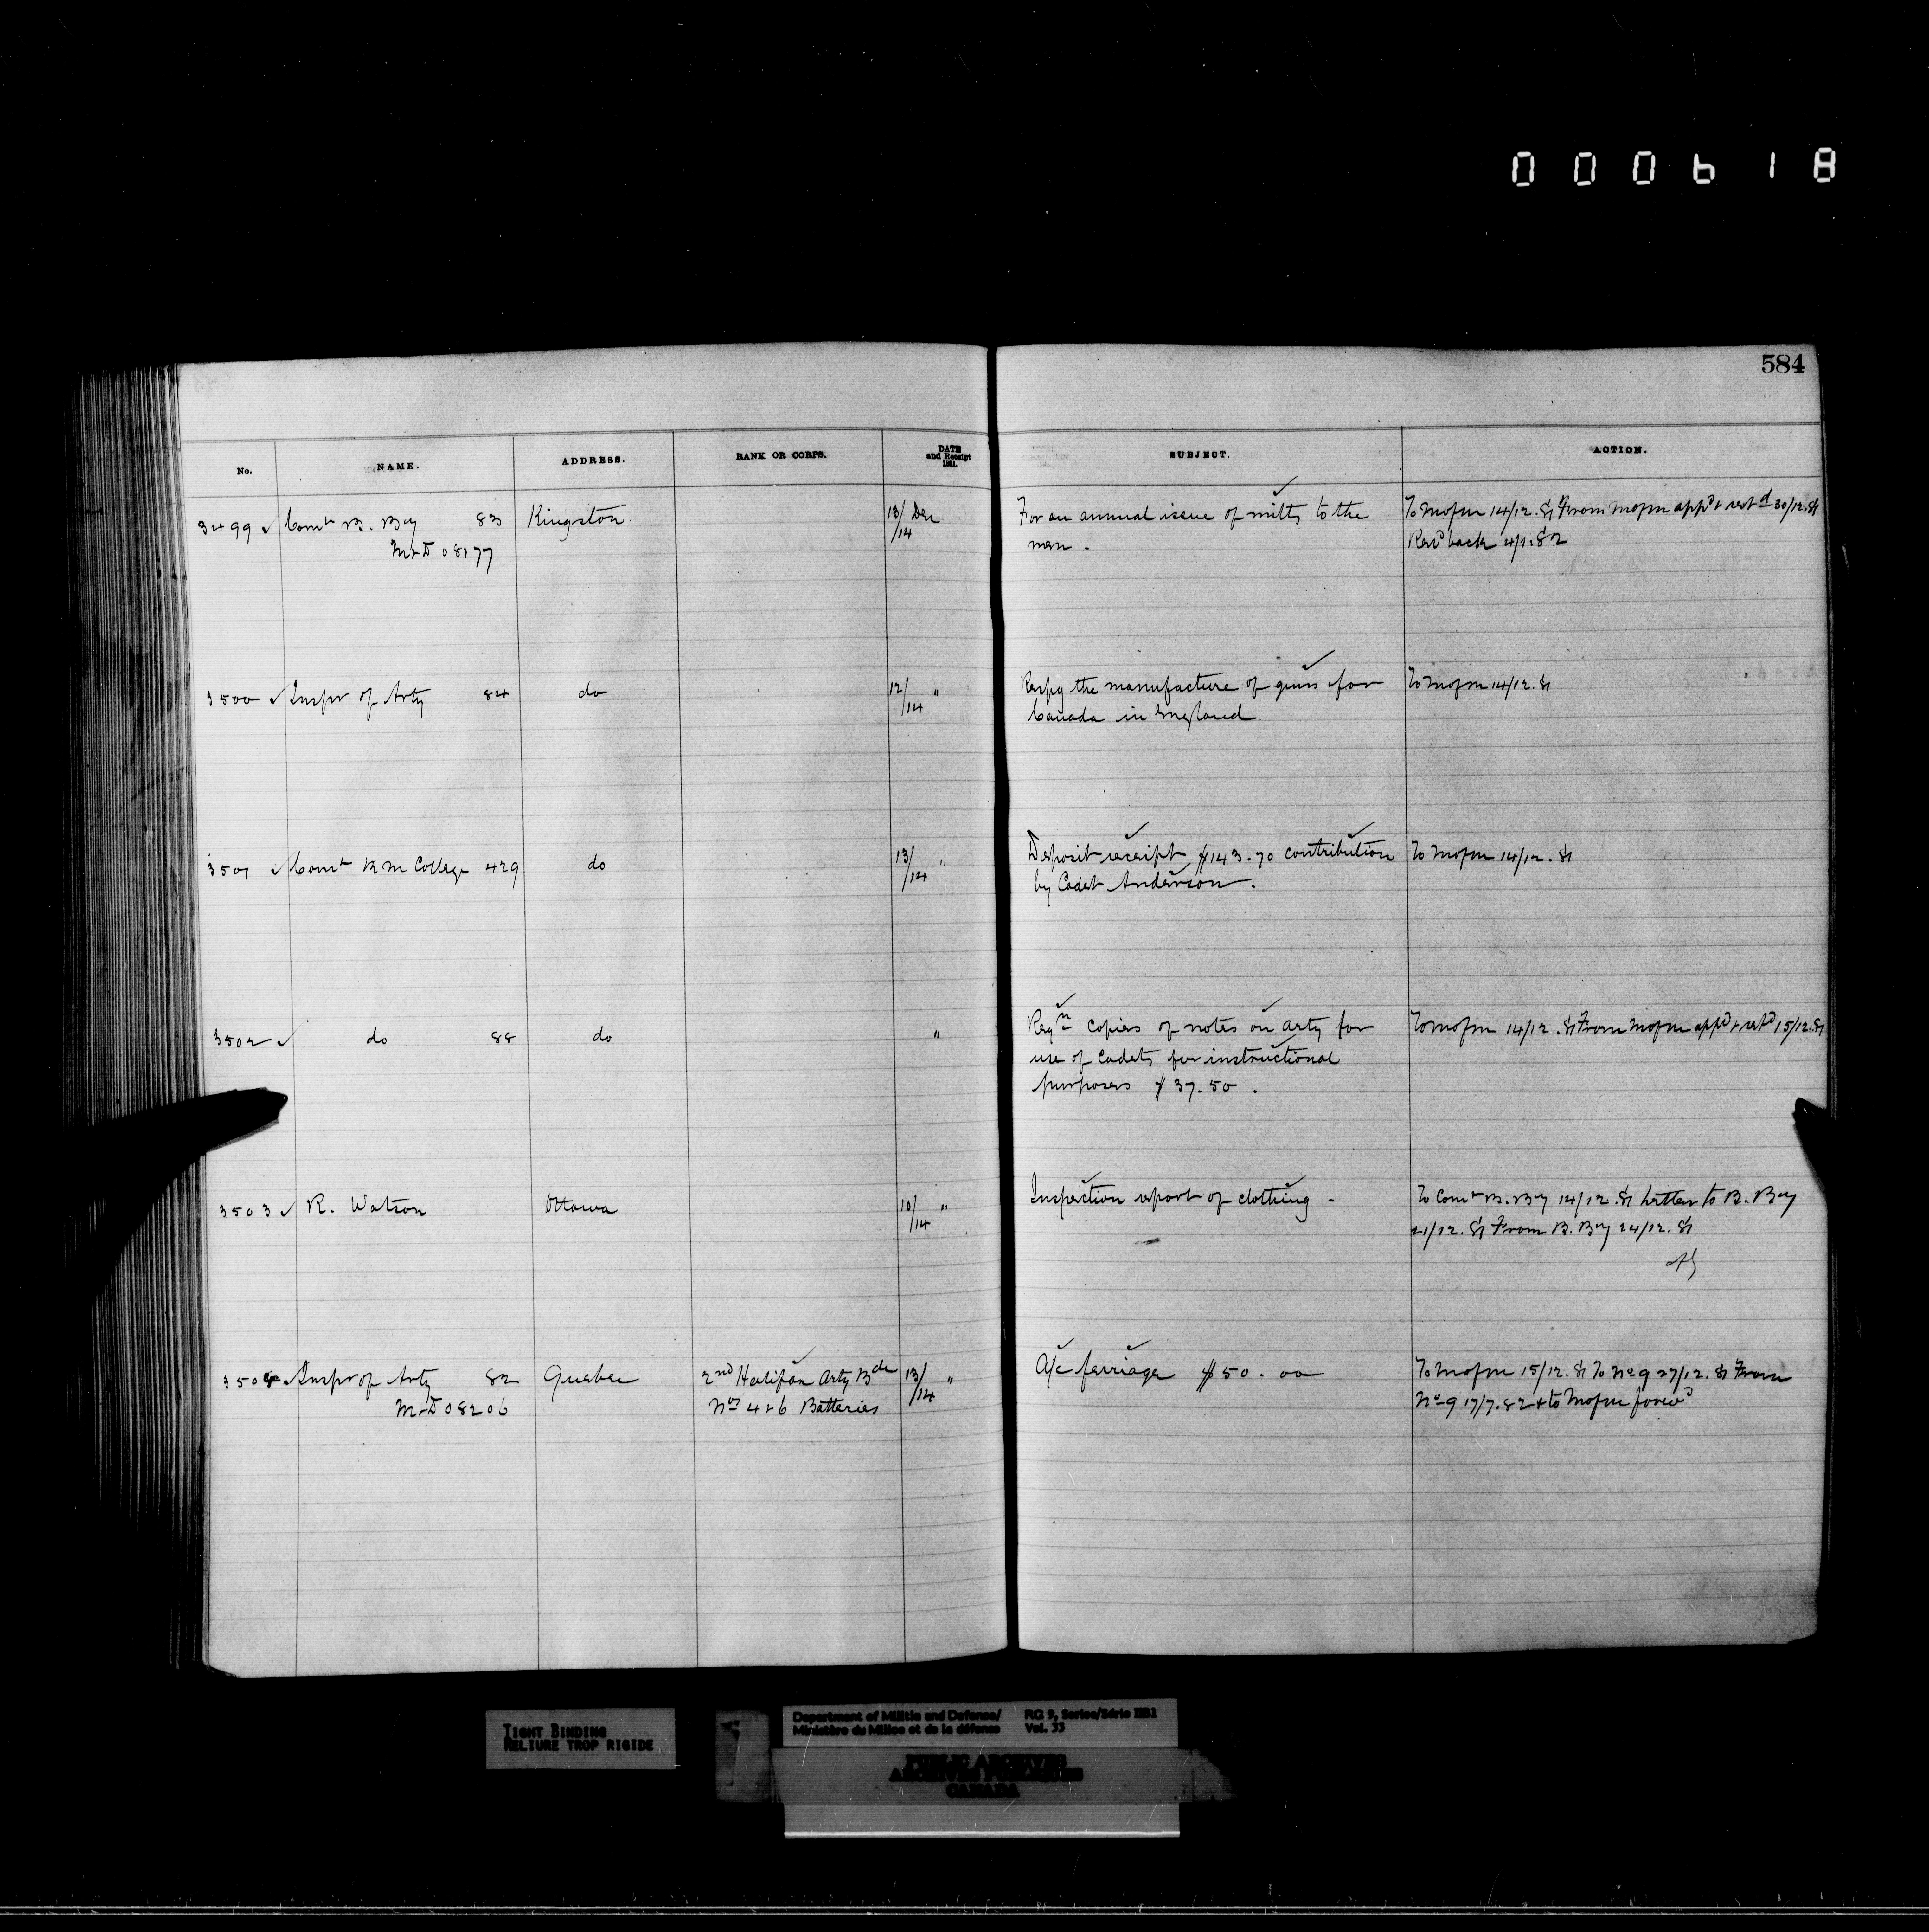 000618
584
No. NAME. ADDRESS. RANK OR CORPS. DATE and Receipt 1881. SUBJECT. ACTION.
3499 ✓ Comt B. By 83 Kingston 13/14 Dec For an annual issue of mitts to the To Mofm 14/12.81 From Mofm appd & retd 30/12.81
M&D 08177 men. Recd back 4/1.82
3500 ✓ Inspr of Arty 84 do 12/14 " Respg the manufacture of guns for To Mofm 14/12.81
Canada in England
3501 ✓ Comt R M College 429 do 13/14 " Deposit receipt $143.70 contribution To Mofm 14/12.81
by Cadet Anderson.
3502 ✓ do 88 do " Reqn copies of notes on arty for To Mofm 14/12.81 From Mofm appd & retd 15/12.81
use of Cadets for instructional
purposes $37.50.
3503 ✓ R. Watson Ottawa 10/14 " Inspection report of clothing - To Comt B. By 14/12.81 Letter to B. By
21/12.81 From B. By 24/12.81
3504 ✓ Inspr of Arty 82 Quebec 2nd Halifax Arty Bde 13/14 " A/c ferriage $50.00 To Mofm 15/12.81 To No 9 27/12.81 From
M&D 08206 Nos 4 & 6 Batteries No 9 17/7.82 & to Mofm forwd
TIGHT BINDING
RELIURE TROP RIGIDE
Department of Militia and Defence/ RG 9, Series/Série IIB1
Ministère du Milice et de la défense Vol. 33
PUBLIC ARCHIVES
ARCHIVES PUBLIQUES
CANADA